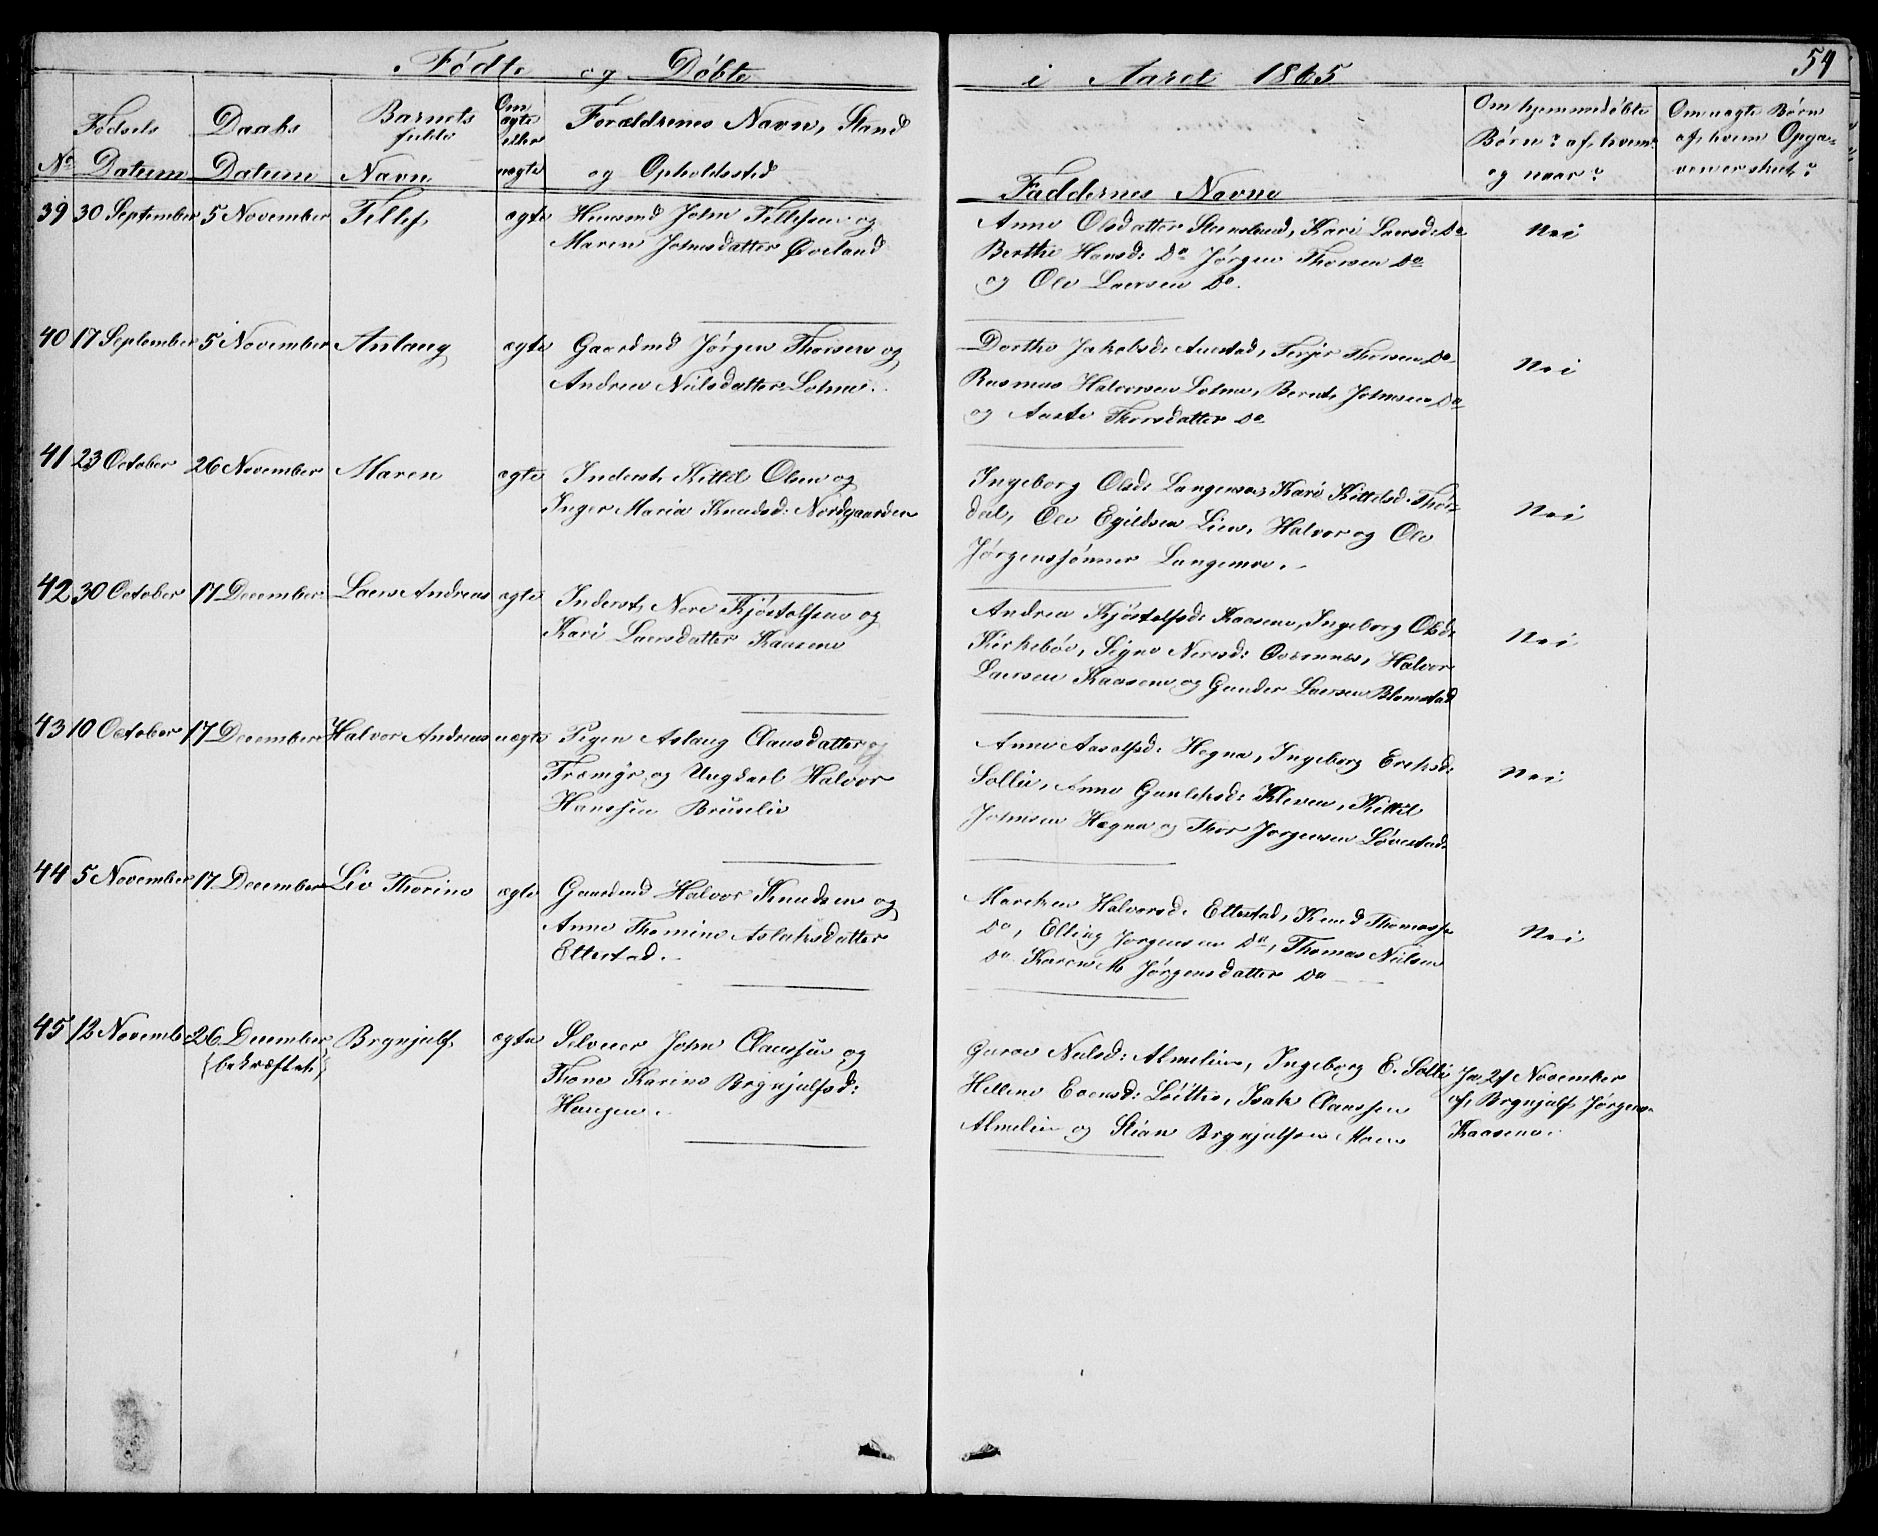 Fødte og Døbte i Aaret 1865
54
No
Fødsels Datum
Daabs Datum
Barnets fulde Navn
Om ægte eller uægte
Forældrenes Navn, Stand
og Opholdssted
Faddernes Navne
Om hjemmedøbte
Børn? af hvem
og naar?
Om uægte Børn
af hvem Opga-
ven er skeet?
39 30 September 5 November Tellef ægte
Huusmd John Tellefsen og
Maren Johnsdatter Øveland
Anne Olsdatter Steensland, Kari Laersd: Do
Berthe Hansd: Do Jørgen Thorsen Do
og Ole Laersen Do.
Nei
40 17 September 5 November Aslaug ægte
Gaardmd Jørgen Thorsen og
Andrea Neilsdatter Lolme.
Dorthe Jakobsd: Aanstad, Terjer Thorsen Do
Rasmus Halvorsen Lolme, Bernt Johnsen Do
og Aaste Thorsdatter Do
Nei
41 23 October 26 November Maren ægte
Inderst Kittel Olsen og
Inger Maria Knudsd: Nordgaarden
Ingeborg Olsd: Langemoe, Kari Kittelsd: Thor-
dal, Ole Egildsen Lien, Halvor og Ole
Jørgenssønner Langemoe.
Nei
42 30 October 17 December Laers Andreas ægte
Inderst, Nere Kjøstolfsen og
Kari Laersdatter Kaasene
Andrea Kjøstolfsd: Kaasene, Ingeborg Olsd:
Kirkebøe, Signe Neresd: Overnæs, Halvor
Laersen Kaasene og Gunder Laersen Blomstad
Nei
43 10 October 17 December Halvor Andreas uægte
Pigen Aslaug Clausdatter og
Træmyr, og Ungkarl Halvor
Hanssen Bruuslie
Anne Aasolfsd: Hegna, Ingeborg Ereksd:
Sollie, Anne Gunleksd: Kleven, Kittil
Johnsen Hægna og Thor Jørgensen Løvestad
Nei
44 5 November 17 December Liv Thorine ægte
Gaardmd Halvor Knudsen og
Anne Thomine Aslaksdatter
Ettestad.
Mareken Halvorsd: Ettestad, Knud Thomass.
Do, Elling Jørgensen Do, Thomas Neilsen
Do Karen M Jørgensdatter Do
Nei
45 12 Novemb 26 December Brynjulf ægte
{bekræftet}
Selveier John Claussen og
Thone Karine Brynjulfsd:
Haugen.
Guroe Neilsd: Almelien, Ingeborg E. Solli
Hellene Evensd: Løitte, Isak Claussen
Almelie og Stian Brynjulfsen Moen
Ja 21 November
af Brynjulf Jørgens.
Kaasene.